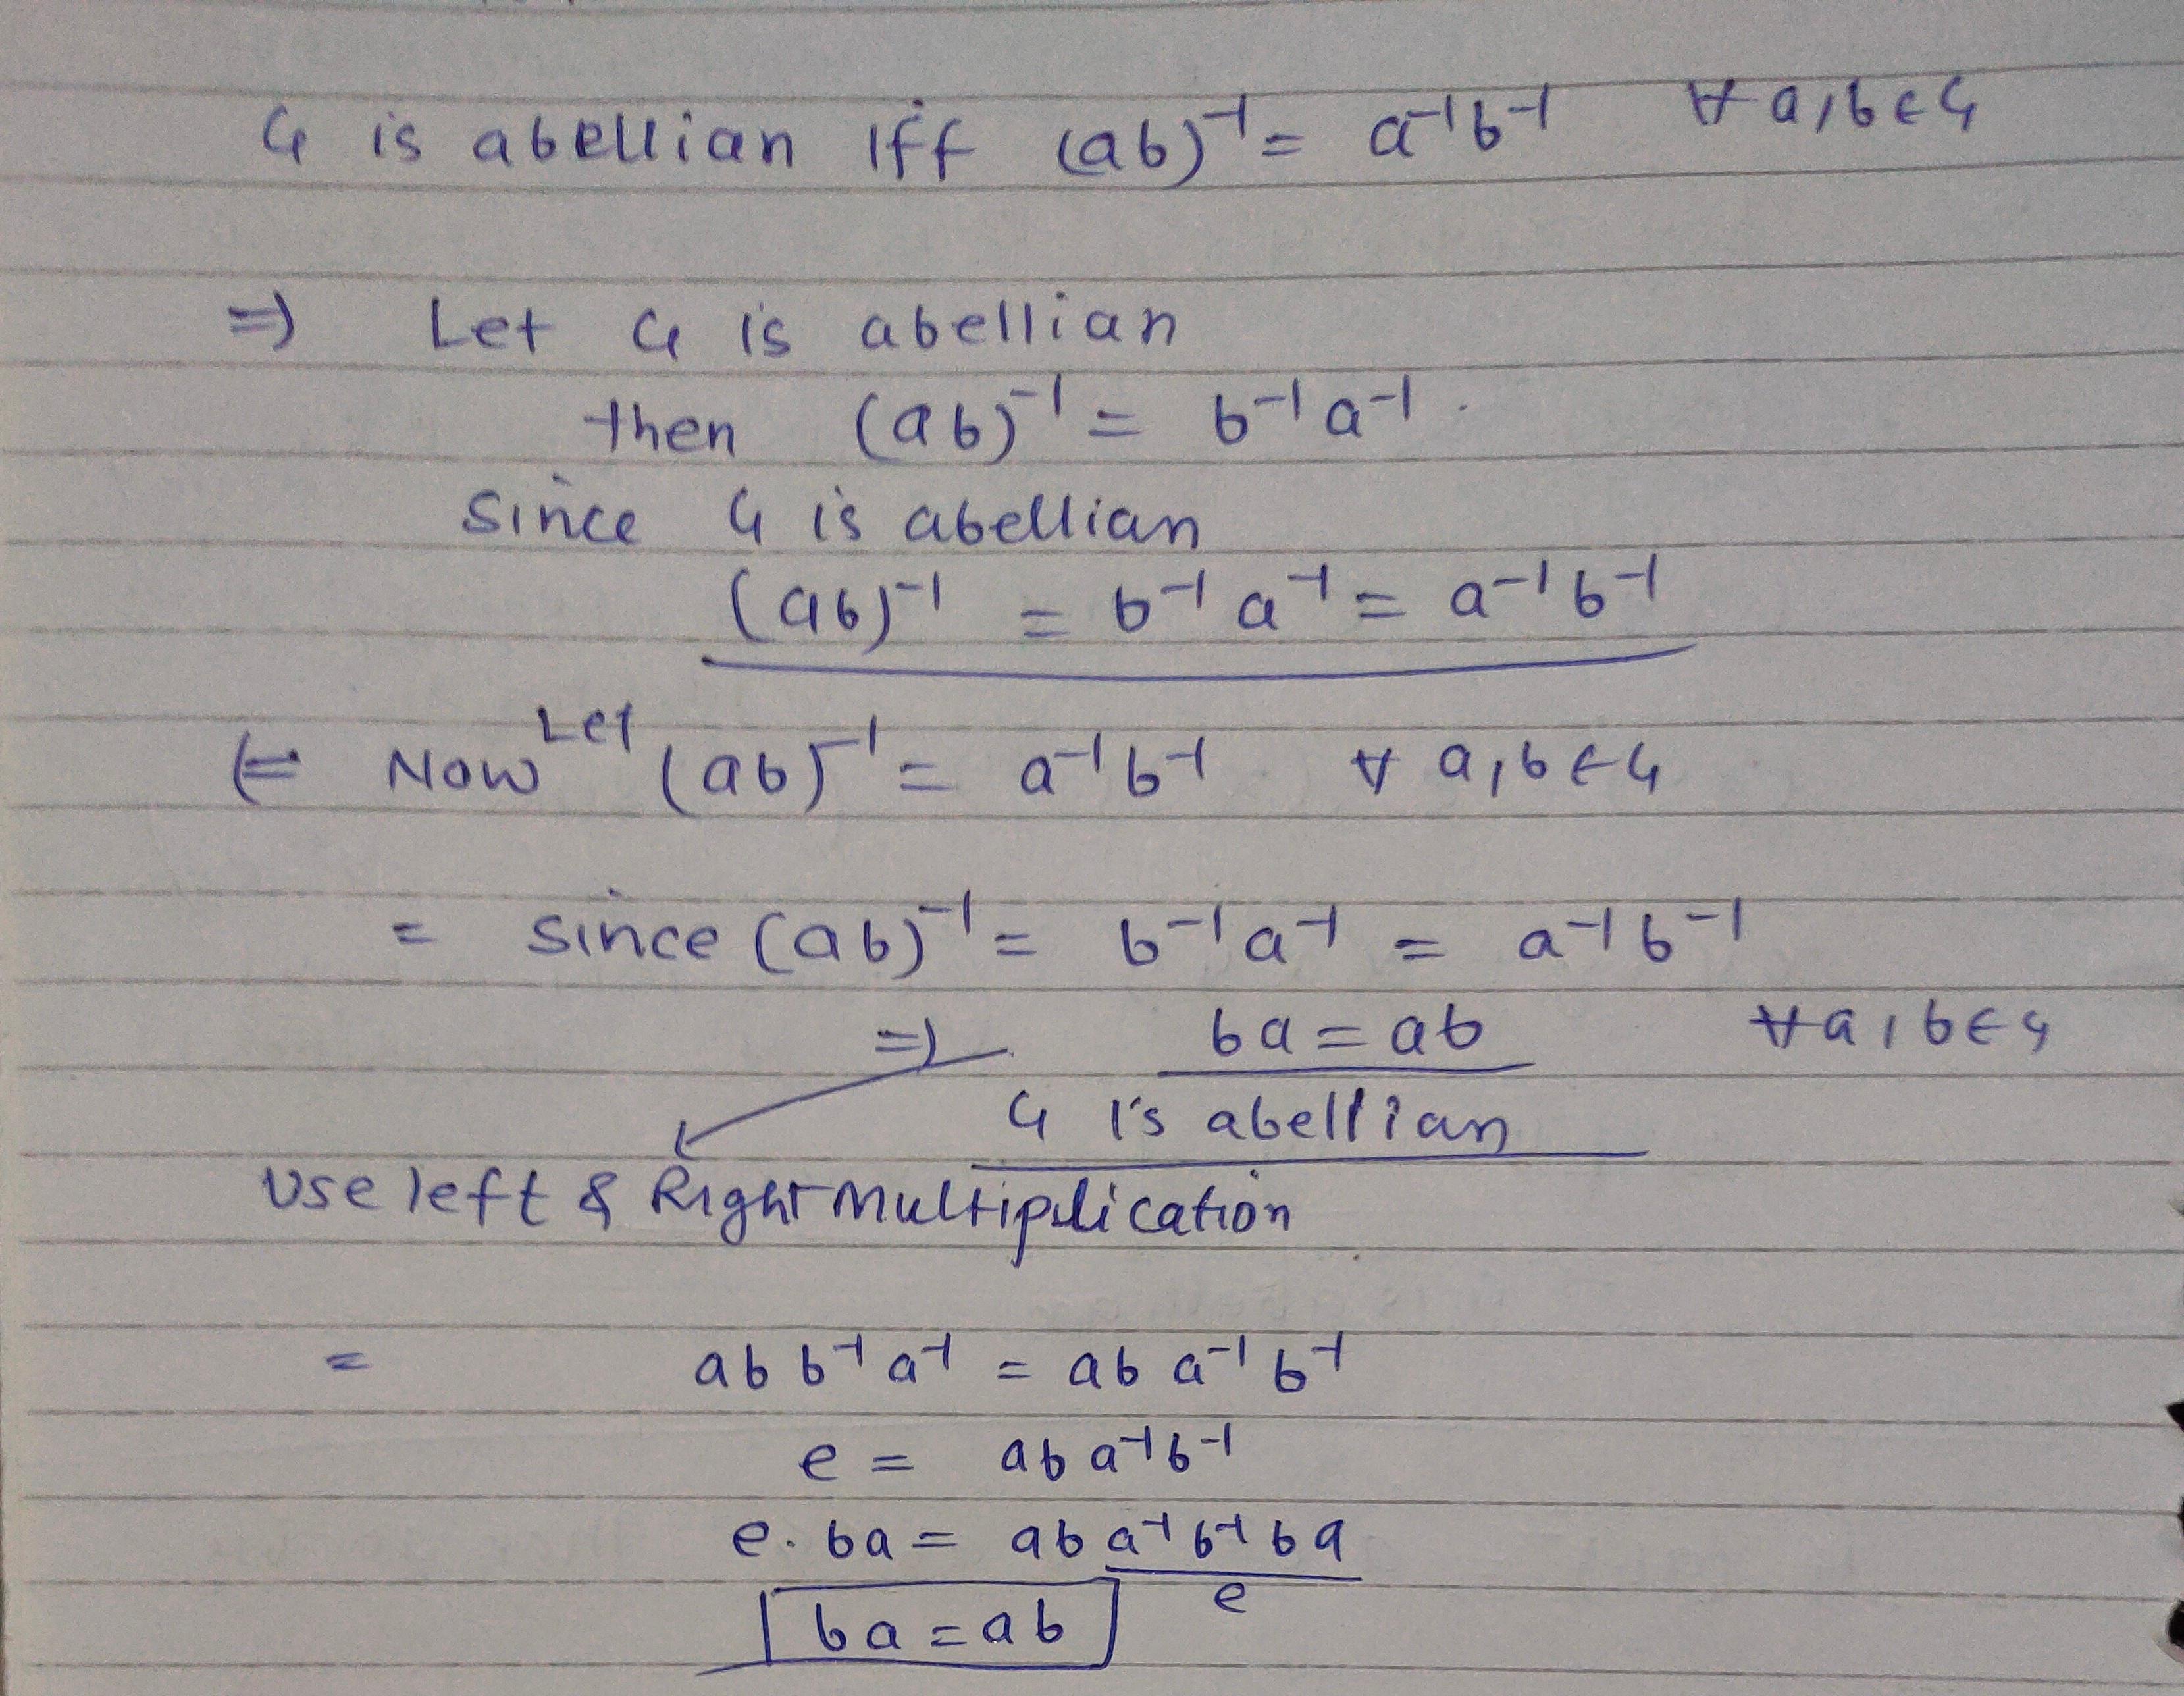 G is abellian iff (ab)⁻¹ = a⁻¹b⁻¹ ∀ a,b∈G
⇒ Let G is abellian
then (ab)⁻¹ = b⁻¹a⁻¹.
since G is abellian
(ab)⁻¹ = b⁻¹a⁻¹ = a⁻¹b⁻¹
⇐ Now Let (ab)⁻¹ = a⁻¹b⁻¹ ∀ a,b∈G
= since (ab)⁻¹ = b⁻¹a⁻¹ = a⁻¹b⁻¹
⇒ ba = ab ∀ a,b∈G
G is abellian
Use left & Right Multiplication
= abb⁻¹a⁻¹ = aba⁻¹b⁻¹
e = aba⁻¹b⁻¹
e.ba = aba⁻¹b⁻¹ba
e
ba = ab